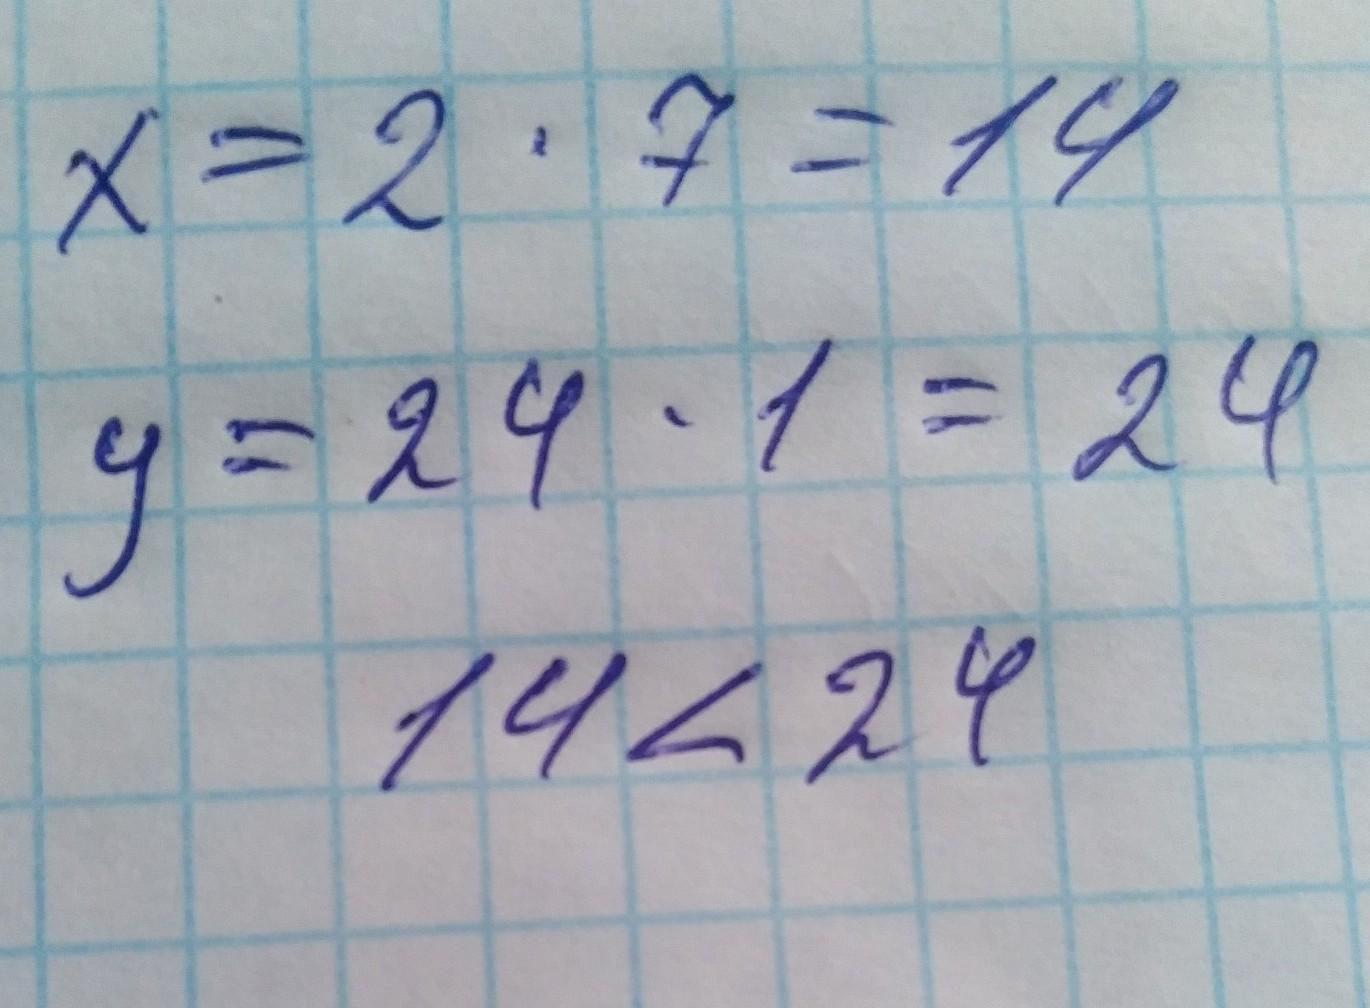 x = 2 · 7 = 14
y = 24 · 1 = 24
14 < 24